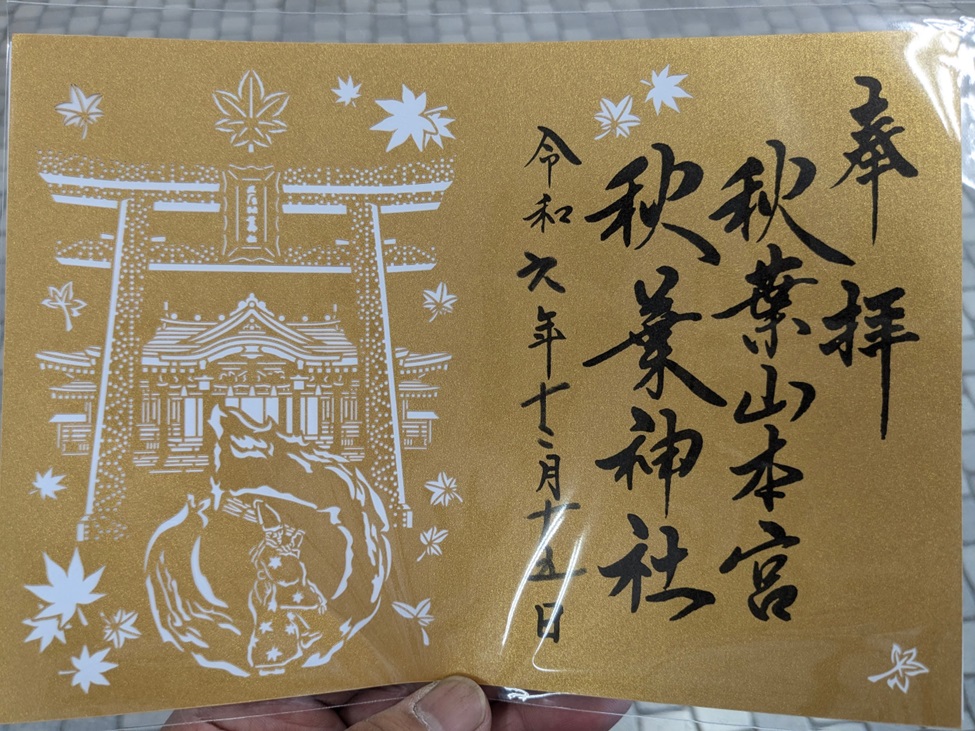 奉拝
秋葉山本宮
秋葉神社
令和六年十二月十五日